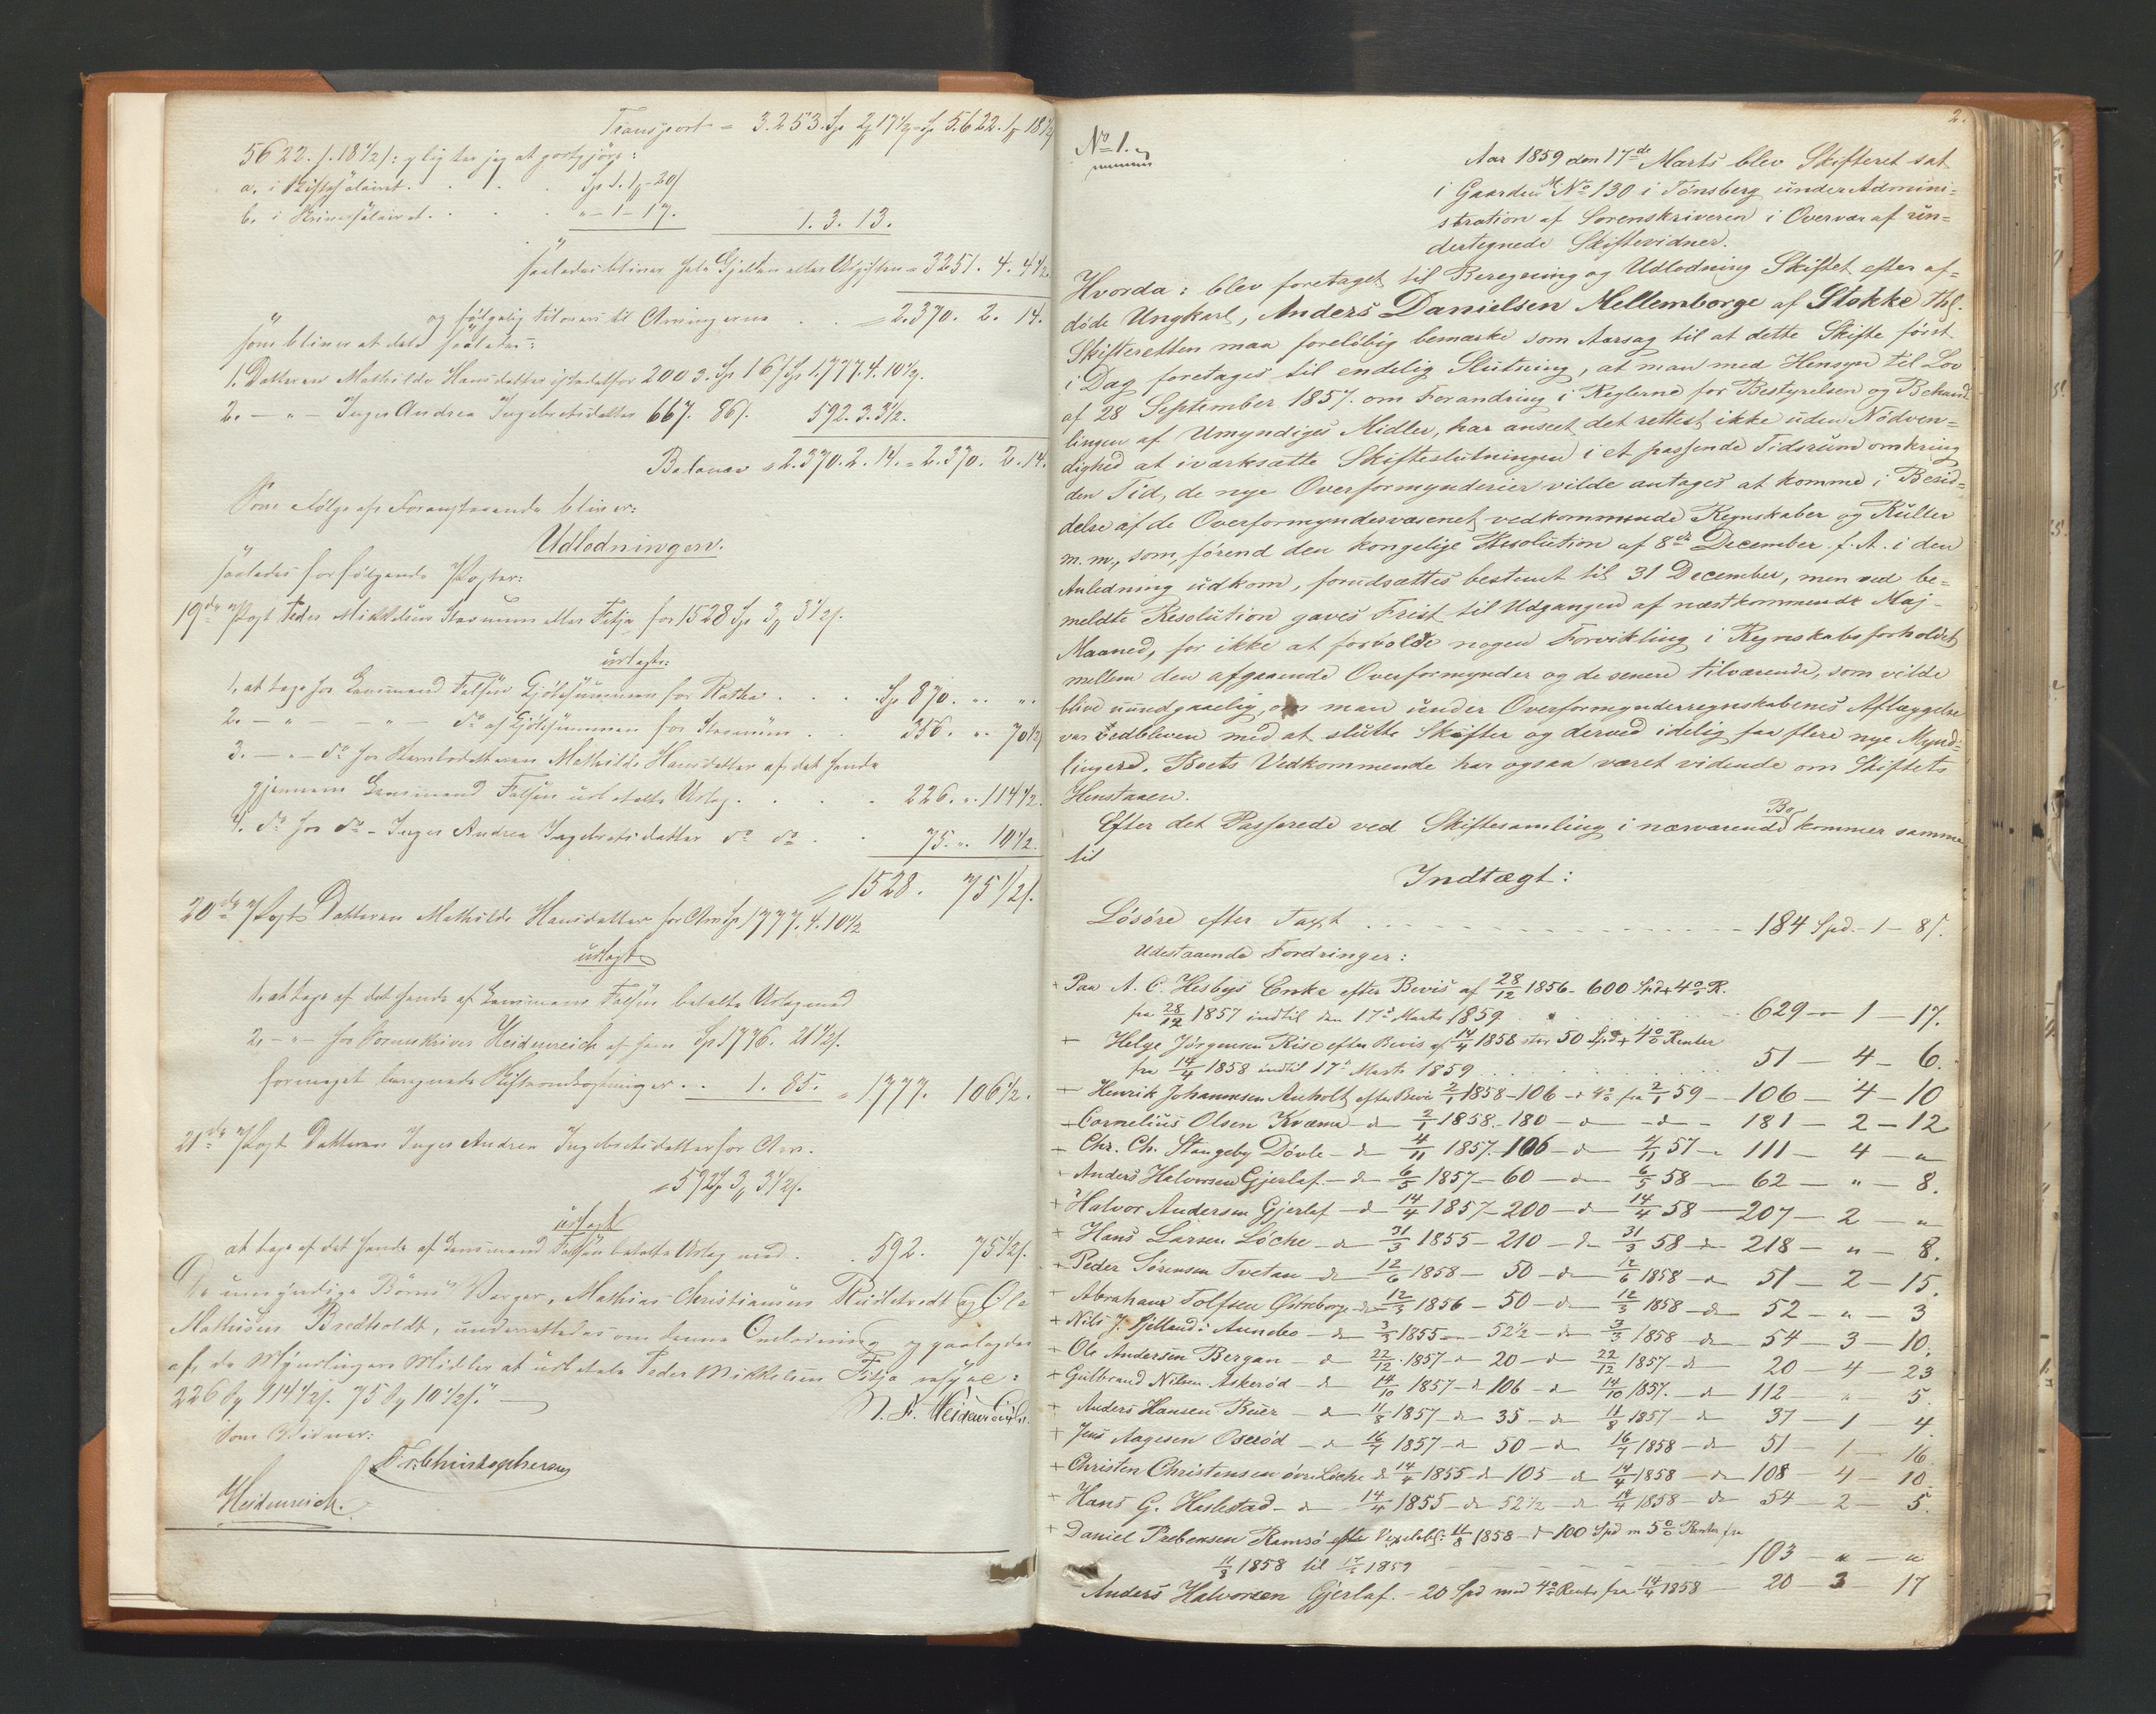 Transport = 3.253. Sp 2 17½ = Sp 5.622. 1 18½
5622. 1. 18½: pligter jeg at godtgjøre:
a. i Skiftesalairet . . . Sp 1. 1 - 20
b. i Skriversalairet . . . " - 1 - 17. 1. 3. 13.
saaledes bliver hele Gjelden eller Udgiften = 3251. 4. 4½
og følgelig tilovers til Arvingerne . . = 2.370. 2. 14.
som bliver at dele saaledes:
1. Datteren Mathilde Hansdatter istedetfor 2003. Sp 16 Sp 1.777. 4. 10½.
2. — " — Inger Andrea Ingebretsdatter 667. 86. 592. 3. 3½.
Balance = 2.370. 2. 14. = 2.370. 2. 14.
Som Følge af Foranstaaende bliver:
Udlodningen.
saaledes for følgende Poster:
19de Post Peder Mikkelsen eller Filja for 1528 Sp 3 3½.
udlagt:
1. at tage hos Lensmand Falsen Kjøbesummen for . . . Sp 870. " "
2. — " — — " — do af Kjøbesummen for . . 356. " 70½
3. — " — do hos Stambodatteren Mathilde Hansdatter af det hende
gjennem Lensmand Falsen udbetalte Udlæg . . . 226. " 114½.
4. do hos do — Inger Andrea Ingebretsdatter do do . . 75. " 10½.
= 1528. 75½.
20de Post Datteren Mathilde Hansdatter for Arv Sp 1777. 4. 10½
udlagt
1. at tage af det hende af Lensmand Falsen betalte Udlæg med
2. — " — hos Sorenskriver Heidenreich af ham Sp 1776. 21½.
formeget beregnede Skifteomkostninger . . 1. 85. = 1777. 106½.
21de Post Datteren Inger Andrea Ingebretsdatter for Arv.
= 592 Sp 3 3½.
udlagt
at tage af det hende af Lensmand Falsen betalte Udlæg med . . 592. 75½.
De umyndige Børns Værger, Mathias Christiansen og Ole
Mathisen Bredholdt, underrettedes om denne Omlodning og paalagdes
af de Myndlingers Midler at udbetale Peder Mikkelsen Filja :
226 Sp 114½. 75 Sp 10½." —
Heidenreich.
Som Vidner:
Fr. Christophersen
Heidenreich.
2.
No 1.
Aar 1859 den 17de Marts blev Skifteret sat
i Gaarden M. No 130 i Tønsberg under Admini-
stration af Sorenskriveren i Overvær af un-
dertegnede Skiftevidner.
Hvorda: blev foretaget til Beregning og Udlodning Skiftet efter af-
døde Ungkarl, Anders Danielsen Mellemborge af Stokke Thgl.
Skifteretten maa foreløbig bemærke som Aarsag til at dette Skifte først
i Dag foretages til endelig Slutning, at man med Hensyn til Lov
af 28 September 1857. om Forandring i Reglerne for Bestyrelsen og Behand-
lingen af Umyndiges Midler, har anseet det rettest ikke uden Nødven-
dighed at iværksætte Skifteslutningen i et passende Tidsrum omkring
den Tid, de nye Overformynderier vilde antages at komme i Besid-
delse af de Overformyndervæsenet vedkommende Regnskaber og Ruller
m. m., som, førend den kongelige Resolution af 8de December f. A. i den
Anledning udkom, forudsættes bestemt til 31 December, men ved be-
meldte Resolution gaves Frist til Udgangen af næstkommende Maj-
Maaned, for ikke at forvolde nogen Forvikling i Regnskabsforholdet
mellem den afgaaende Overformynder og de senere tilværende, som vilde
blive uundgaaelig, om man under Overformynderregnskabenes Aflæggelse
var vedbleven med at slutte Skifter og derved idelig faa flere nye Mynd-
lingere. Boets Vedkommende har ogsaa været vidende om Skiftets
Henstaaen.
Efter det Passerede ved Skiftesamling i nærværende Bo kommer samme
til
Indtægt:
Løsøre efter Taxt . . . 184 Spd. - 1 - 8.
Udestaaende Fordringer:
+ Paa A. C. Hesbys Enke efter Bevis af 28/12 1856 - 600 Spd + 4% R.
fra 28/12 1857 indtil den 17de Marts 1859 . . . 629 — 1 — 17.
+ Helge Jørgensen Rise efter Bevis af 14/4 1858 stor 50 Spd + 4% Renter
fra 14/4 1858 indtil 17de Marts 1859 . . . 51 — 4 — 6.
+ Henrik Johannesen Aucholt efter Bevis 2/1 1858 - 106 + 4% fra 2/1 59 — 106 — 4 — 10
+ Cornelius Olsen Kværne - d - 2/1 1858 - 180 - d - d - 181 — 2 — 12
+ Chr. Ch. Stangeby Døvle - d - 4/11 1857 - 106 - d - 4/11 57 - 111 — 4 — "
+ Anders Halvorsen Gjerlaf - d - 6/5 1857 - 60 - d - 6/5 58 - 62 — " — 8.
+ Halvor Andersen Gjerlaf - d - 14/4 1857 - 200 - d - 14/4 58 - 207 — 2 — "
+ Hans Larsen Løche - d - 31/3 1855 - 210 - d - 31/3 58 - d - 218 — " — 8.
+ Peder Sørensen Tvetan - d - 12/6 1858 - 50 - d - 12/6 1858 - d - 51 — 2 — 15.
+ Abraham Tolfsen Østreborge - d - 12/3 1856 - 50 - d - 12/3 1858 - d - 52 — " — 3
+ Nils J. Sjelland i Aunebo - d - 3/3 1855 - 52½ - d - 3/3 1858 - d - 54 — 3 — 10.
+ Ole Andersen Bergan - d - 22/12 1857 - 20 - d - 22/12 1857 - d - 20 4 — 23
+ Gulbrand Nilsen Askerød - d - 14/10 1857 - d 106 - d - 14/10 1857. - d - 112 — " 5.
+ Anders Hansen Buer - d - 11/8 1857 - d - 35 - d - 11/8 1857 - d - 37 — 1 4.
+ Jens Aagesen Oserød - d - 16/7 1857 - d - 50 - d - 16/7 1858 - d - 51 1 — 16.
+ Christen Christensen øvre Løche d 14/4 1855 - d - 105 - d - 14/4 1858 - d - 108 — 4 — 10.
+ Hans G. Haslestad - d - 14/4 1855 - d - 52½ - d - 14/4 1858 - d - 54 — 2 — 5.
+ Daniel Prebensen Ramsø efter Vexelobl: 11/8 1858 - d 100 Spd m 5% Renter fra
11/8 1858 til 17/3 1859 — 103 — " — "
Anders Halvorsen Gjerlaf. - 20 Spd med 4% Rente fra 14/4 1858 20 — 3 17